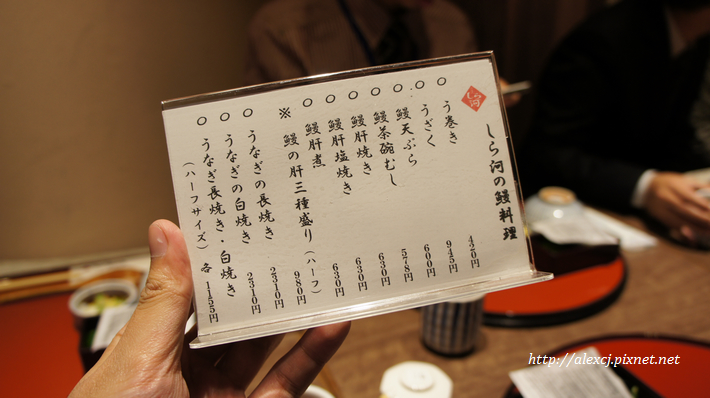 しら河
しら河の鰻料理
○ う巻き 420円
○ うざく 945円
○ 鰻天ぷら 600円
○ 鰻茶碗むし 578円
○ 鰻肝焼き 630円
○ 鰻肝塩焼き 630円
○ 鰻肝煮 630円
※ 鰻の肝三種盛り(ハーフ) 980円
○ うなぎの長焼き 2310円
○ うなぎの白焼き 2310円
○ うなぎ長焼き・白焼き
(ハーフサイズ) 各 1155円
http://alexcj.pixnet.net